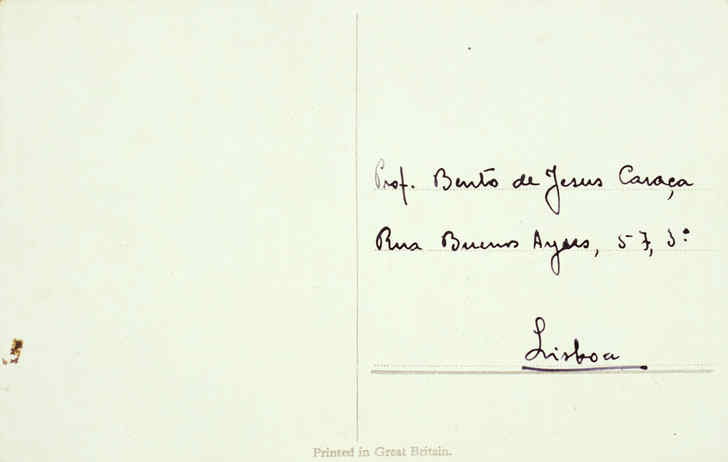 Prof. Bento de Jesus Caraça
Rua Buenos Ayres, 57, 3º
Lisboa
Printed in Great Britain.